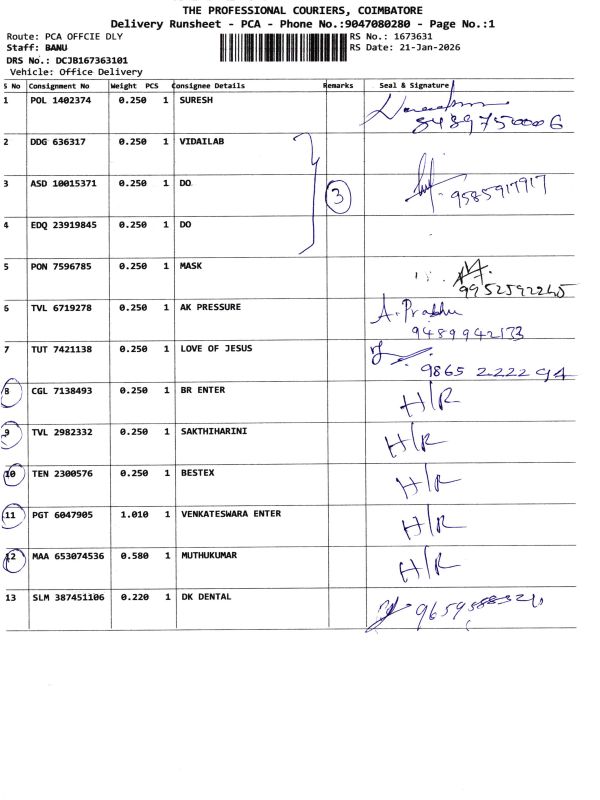 THE PROFESSIONAL COURIERS, COIMBATORE
Delivery Runsheet - PCA - Phone No.:9047080280 - Page No.:1
Route: PCA OFFCIE DLY RS No.: 1673631
Staff: BANU RS Date: 21-Jan-2026
DRS No.: DCJB167363101
Vehicle: Office Delivery
S No Consignment No Weight PCS Consignee Details Remarks Seal & Signature
1 POL 1402374 0.250 1 SURESH
2 DDG 636317 0.250 1 VIDAILAB
3 ASD 10015371 0.250 1 DO. 3 9585917917
4 EDQ 23919845 0.250 1 DO
5 PON 7596785 0.250 1 MASK
6 TVL 6719278 0.250 1 AK PRESSURE A. Prabhu
9489942133
7 TUT 7421138 0.250 1 LOVE OF JESUS
9865 2222 94
8 CGL 7138493 0.250 1 BR ENTER H/R
9 TVL 2982332 0.250 1 SAKTHIHARINI H/R
10 TEN 2300576 0.250 1 BESTEX H/R
11 PGT 6047905 1.010 1 VENKATESWARA ENTER H/R
12 MAA 653074536 0.580 1 MUTHUKUMAR H/R
13 SLM 387451106 0.220 1 DK DENTAL